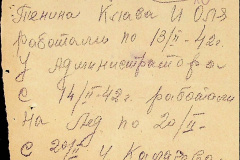 Пенина Клава и Оля
работали по 13/II-42г.
у Администратора
с 14/II-42г. работали
На Лед по 20/II-
с 20/II у